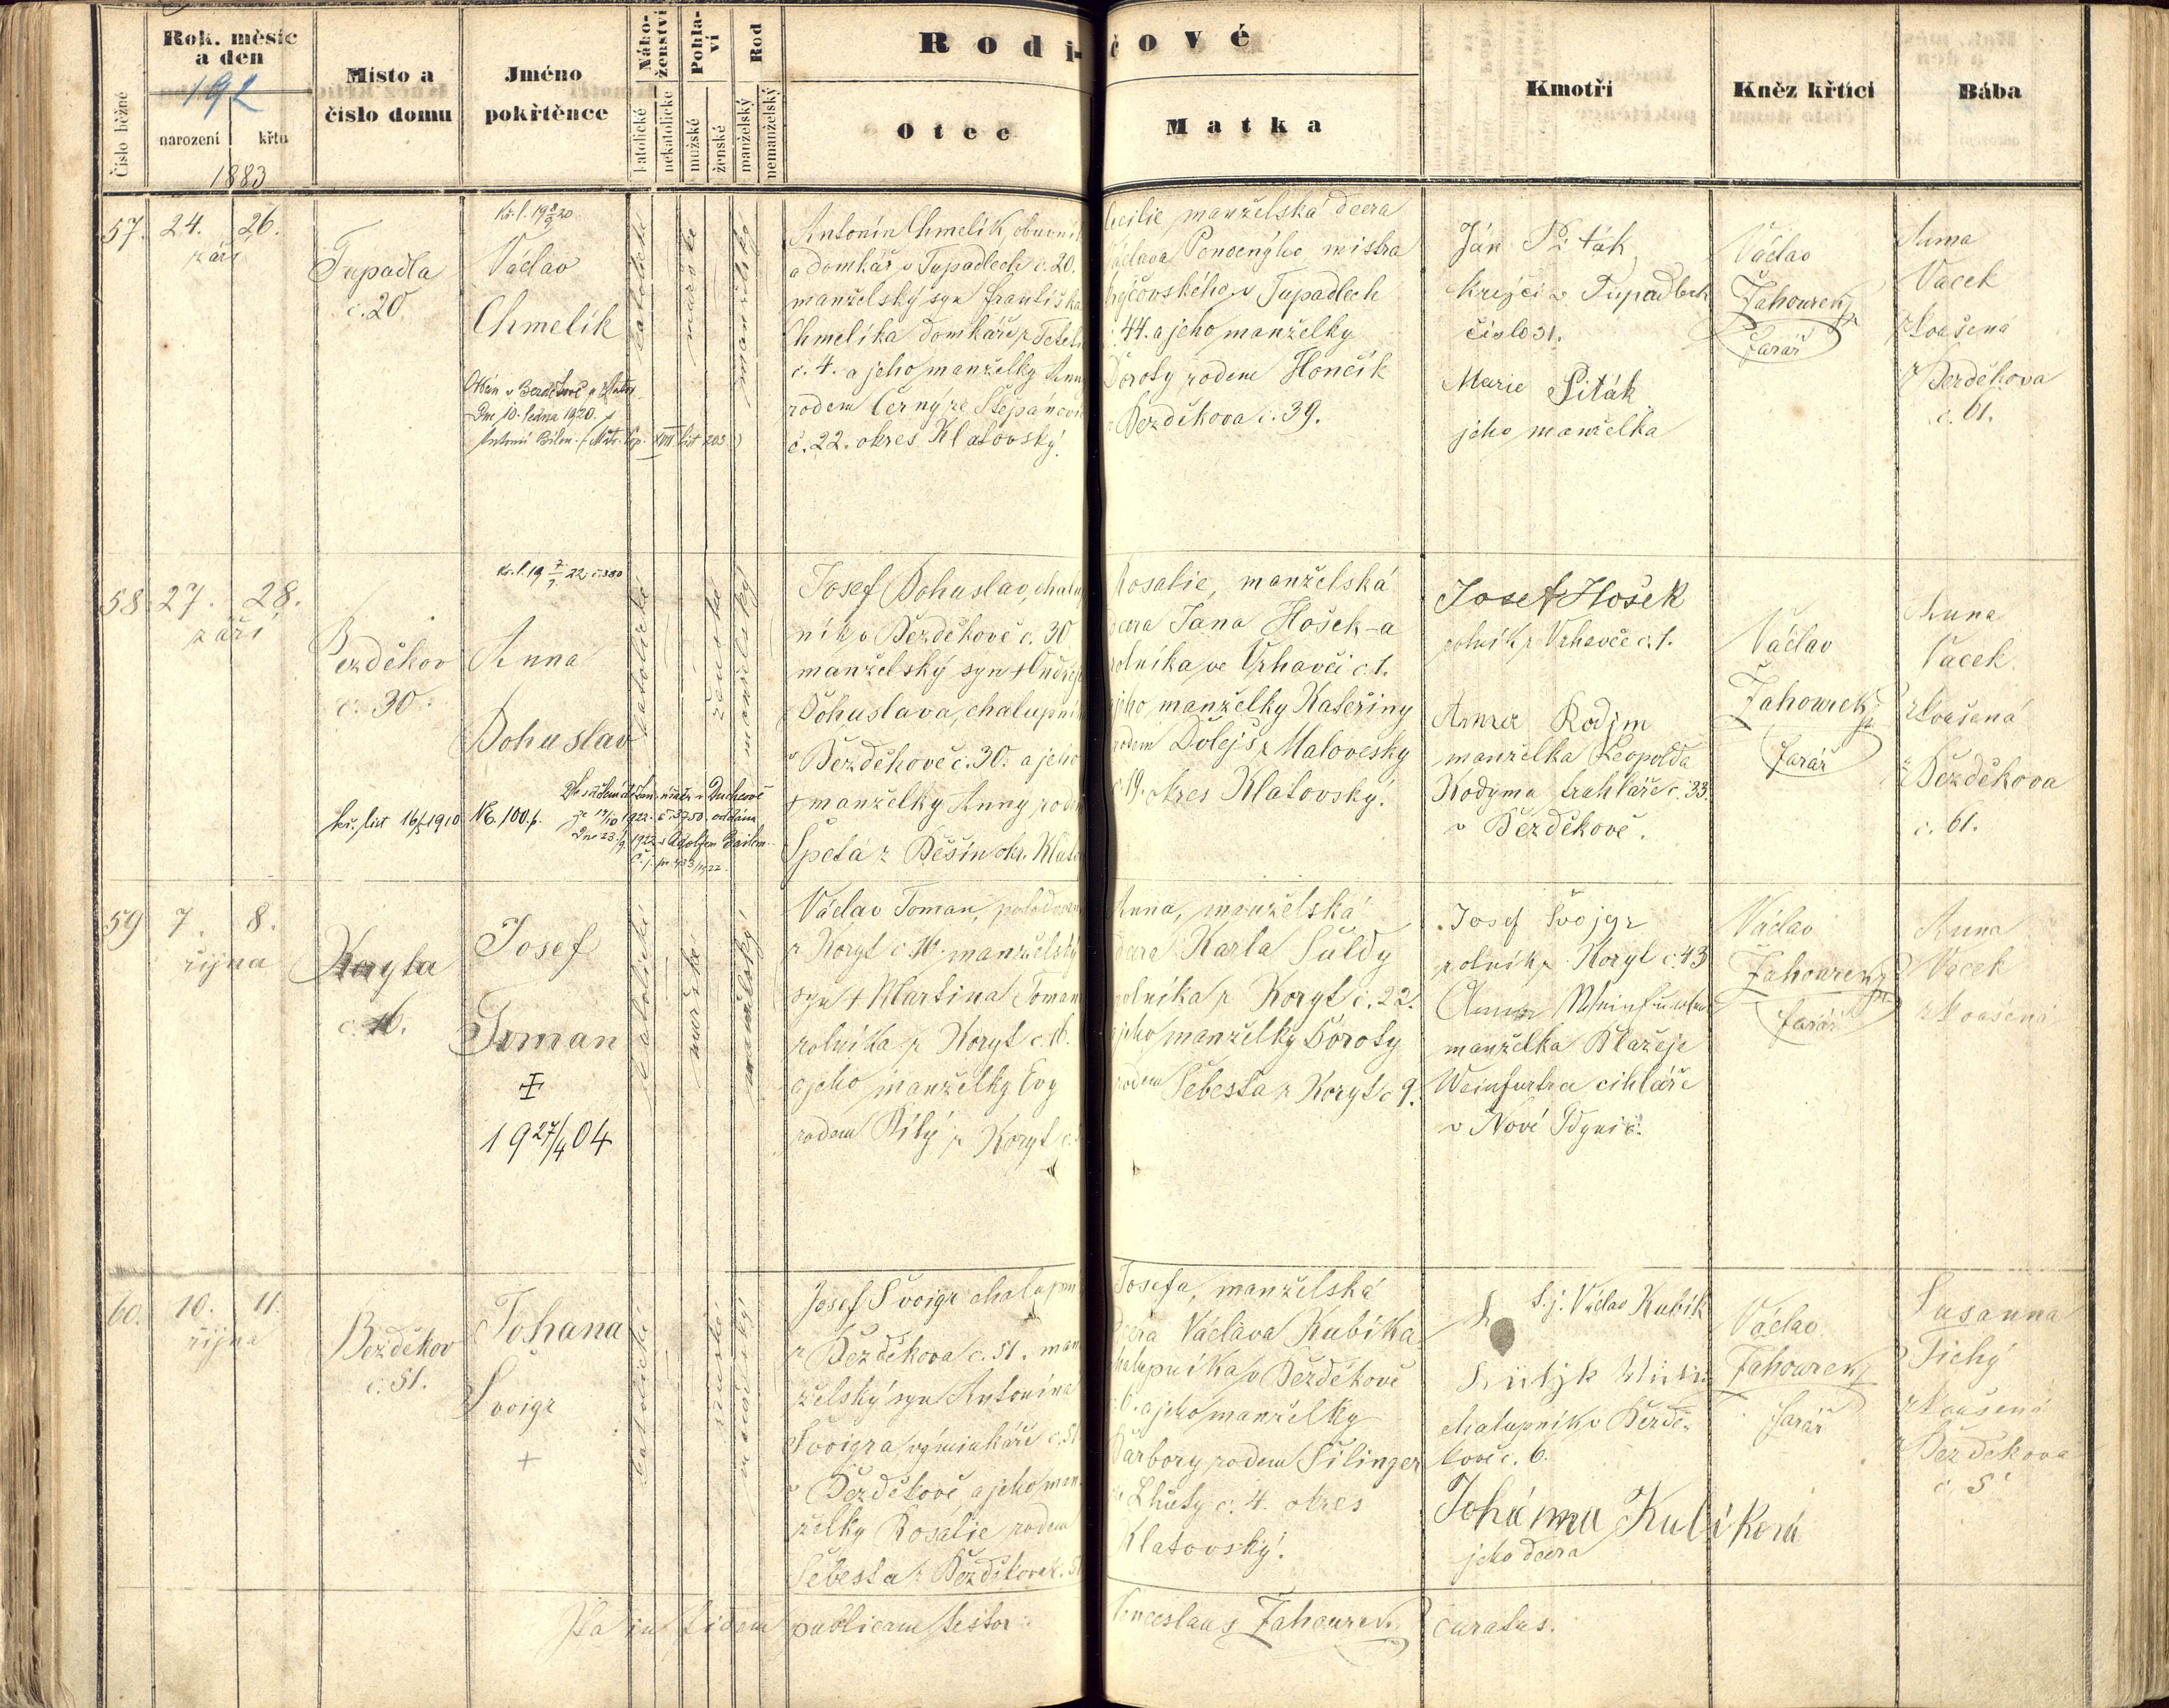 Číslo běžné
Rok, měsíc
a den
192
narození
křtu
1883
Místo a
číslo domu
Jméno
pokřtěnce
Nábo-
ženství
katolické
nekatolické
Pohla-
ví
mužské
ženské
Rod
manželský
nemanželský
Rodi-čové
Otec
Matka
Kmotři
Kněz křtící
Bába
57.
24. 26.
září
Tupadla
č. 20
Václav
Chmelík
katolické
mužské
manželské
Antonín Chmelík, obuvník
a domkář v Tupadlech č. 20.
manželský syn Františka
Chmelíka domkáře z
č. 4. a jeho manželky Anny
rodem Černý ze Štěpánovic
č. 22. okres Klatovský.
Cecilie, manželská dcera
Václava mistra
krejčovského v Tupadlech
č. 44. a jeho manželky
Doroty rodem Hončík
z Bezděkova č. 39.
Ján Piták
krejčí v Tupadlech
číslo 31.
Marie Piták
jeho manželka
Václav
Zahourek
farář
Anna
Vacek
zkoušená
z Bezděkova
č. 61.
58.
27. 28.
září
Bezděkov
č. 30.
Anna
Bohuslav
kř. list 16/5 1910
katolické
ženské
manželský
Josef Bohuslav, chalup
ník v Bezděkově č. 30
manželský syn + Ondřeje
Bohuslava, chalupníka
v Bezděkově č. 30. a jeho
+ manželky Anny, rodem
Špeta z Běšin okr. Klatov
Rosalie, manželská
dcera Jana Hošek-a
rolníka ve Vrhavči č. 1.
jeho manželky Kateřiny
rodem Dolejš z Malovesky
č. 19. okres Klatovský.
Josef Hošek
rolník z Vrhavče č. 1.
Anna Kodym
manželka Leopolda
Kodyma truhláře č. 33.
v Bezděkově.
Václav
Zahourek
farář
Anna
Vacek
zkoušená
z Bezděkova
č. 61.
59
7. 8.
října
Koryta
č. 16.
Josef
Toman
1927/4 04
katolické
mužské
manželský
Václav Toman,
z Koryt č. 16. manželský
syn + Martina Tomana
rolníka z Koryt č. 16.
a jeho manželky Evy
rodem Bílý z Koryt č.
Anna, manželská
dcera Karla Šuldy
rolníka z Koryt č. 22.
a jeho manželky Doroty
rodem Šebesta z Koryt č 9.
Josef Švojgr
rolník z Koryt č. 43
Anna
manželka Blažeje
Weinfurtra cihláře
v Nové Kdyni č.
Václav
Zahourek
farář
Anna
Vacek
zkoušená
60.
10. 11.
října
Bezděkov
č. 51.
Johana
Švoigr
+
katolické
ženské
manželský
Josef Švoigr chalupník
z Bezděkova č. 51. man
želský syn Antonína
Švoigra výminkáře č. 51
v Bezděkově a jeho man
želky Rosalie rodem
Šebesta z Bezděkova č. 51
Josefa, manželská
dcera Václava Kubíka
chalupníka v Bezděkově
č. 6. a jeho manželky
Barbory rodem Šilinger
ze Lhůty č. 4. okres
Klatovský.
Václav Kubík
chalupník v Bezdě-
kově č. 6.
Johanna Kubíková
jeho dcera
Václav
Zahourek
farář
Susanna
Tichý
zkoušená
z Bezděkova
č. 5
Ita in fidem publicam testor: Venceslaus Zahourek curatus.